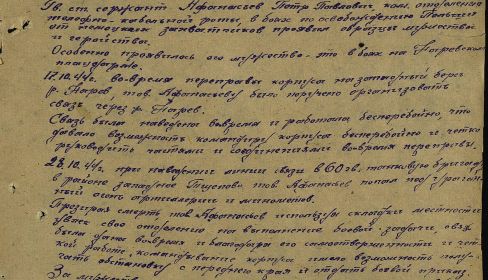 Гв. ст. сержант Афанасьев Петр Павлович, ком. отделения
телефонно-кабельной роты, в боях по освобождению Польши
от немецких захватчиков проявил образцы мужества
и геройства.
Особенно проявилось его мужество - это в боях на Наревском
плацдарме.
17.10.44г. во-время переправы корпуса на западный берег
р. Нарев, тов. Афанасьеву было поручено организовать
связь через р. Нарев.
Связь была наведена вовремя и работала бесперебойно, что
давало возможность командиру корпуса бесперебойно и четко
руководить частями и соединениями во время переправы.
28.10.44г. при наведении линии связи в 60 гв. танковую бригаду
в районе западнее тов. Афанасьев попал под ураган-
ный огонь артиллерии и минометов.
Презирая смерть тов. Афанасьев используя складки местности
увлек свое отделение на выполнение боевой задачи, связь
была дана вовремя и благодаря его самоотверженности и чет-
кой работе, командование корпуса имело возможность полу-
чать обстановку с переднего края и отдать боевой приказ.
За мужество